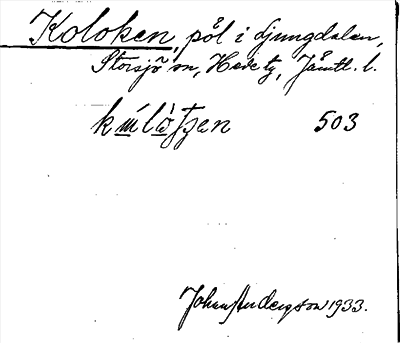 Koloken, pøl i Ljungdalen,
Storsjö sn, Hede tg, Jämtl. l.
503
Johan Anderson 1933.